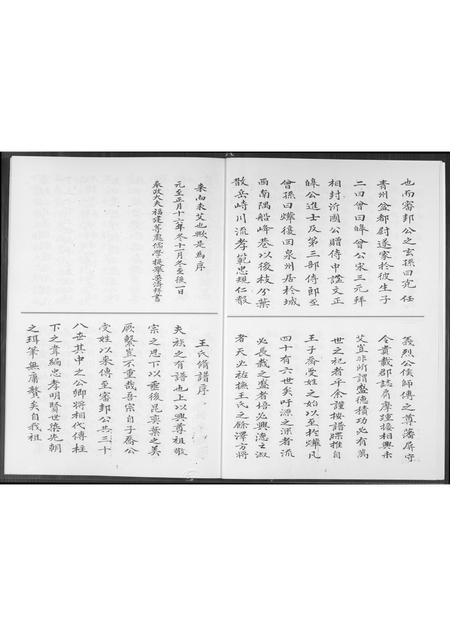 也而審邦公之玄孫曰克任
青州益都尉遂家於彼生子
二曰曾曰皞曾公宋三元拜
相封沂國公贈侍中諡文正
皞公進士及第三部侍郎至
曾孫曰燦復回泉州居於城
西南隅船峰巷以後枝分葉
散岳峙川流孝範忠規仁敷
義烈公侯師傅之尊藩屏守
令貴載郡誌肩摩踵接相興未
艾豈非所謂盛德積功必有萬
世之祀者乎余謹按譜牒推自
王子喬受姓之始以至於燦凡
四十有六世矣吁源之深者流
必長栽之盛者培必興德之淑
者天必祐撫王氏之餘澤方將
來而未艾也歟是為序
元至正月十六年冬十一月冬至後一日
奉政大夫福建等處儒學提舉晏濤拜書
王氏脩譜序
夫族之有譜也上以興尊祖敬
宗之思下以垂後昆奕葉之美
厥繫豈不重哉吾宗自子喬公
受姓以來傳至審邦公共三十
八世其中之公卿將相代傳柱
下之書編忠孝明賢世榮先朝
之珥筆無庸贅矣自我祖